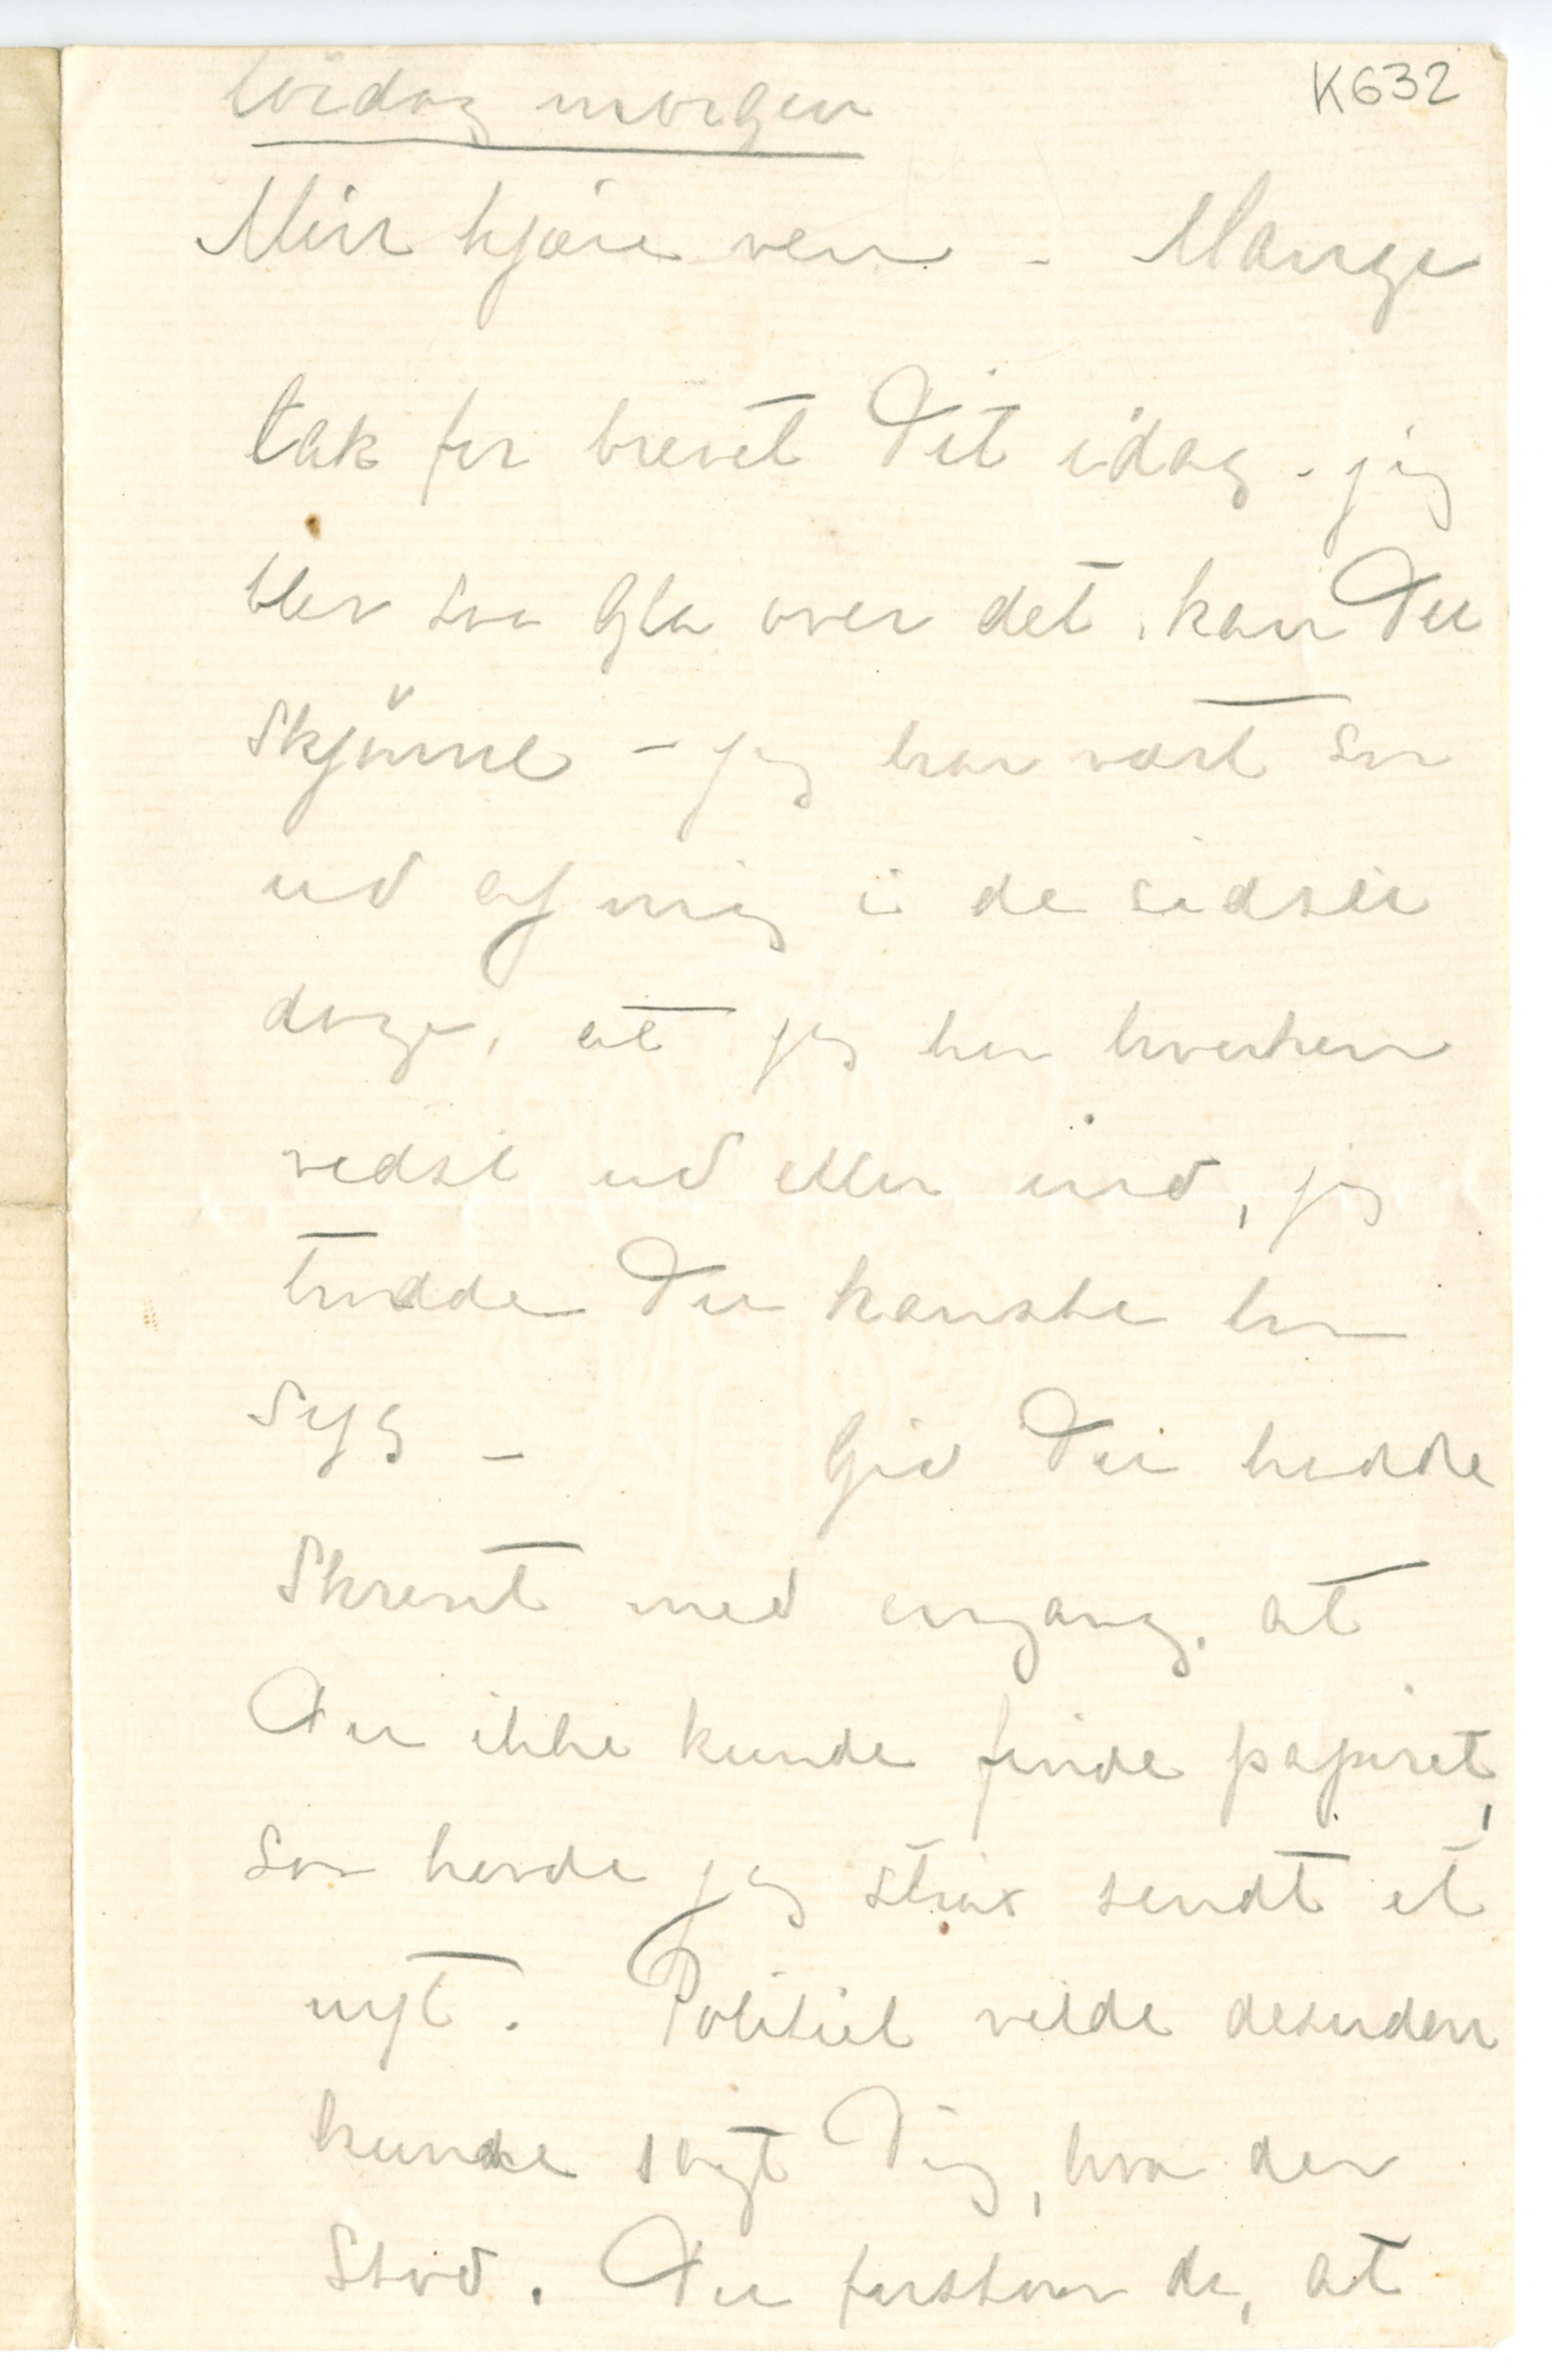 K632
lördag morgen
Min kjære ven - Mange
tak for brevet Dit idag - jeg
blev saa gla over det, kan Du
skjönne - jeg har vært saa
ud af mig i de sidste
dage, at jeg har hverken
vidst ud eller ind, jeg
trodde Du kanske var
syg - Gid Du hadde
skrevet med engang, at
Du ikke kunde finde papiret,
saa havde jeg strax sendt et
nyt. Politiet vilde desuden
kunde sagt Dig, hva der
stod. Du forstaar da, at